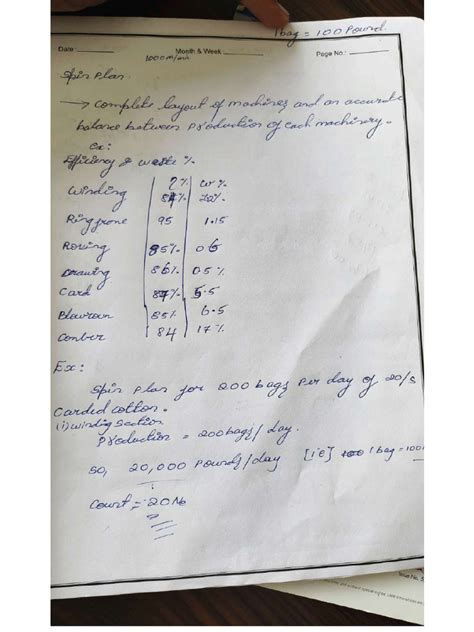 1 bag = 100 Pound
Date : Month & Week : Page No. :
1000 m/min
Spin Plan
→ complete layout of machines and an accurate
balance between production of each machinery.
ex:
Efficiency & waste %
η% W%
Winding
Ringframe 95 1.15
Roving 85%
Drawing 86% 0.5%
Card 5.5
Blowroom 85% 6.5
Comber 84 17%
Ex:
Spin Plan for 200 bags Per day of 20/s
Carded cotton.
(i) winding section
Production = 200 bags/day.
so, 20,000 Pounds/day [i.e] 1 bag = 100
Count = 20 Ne